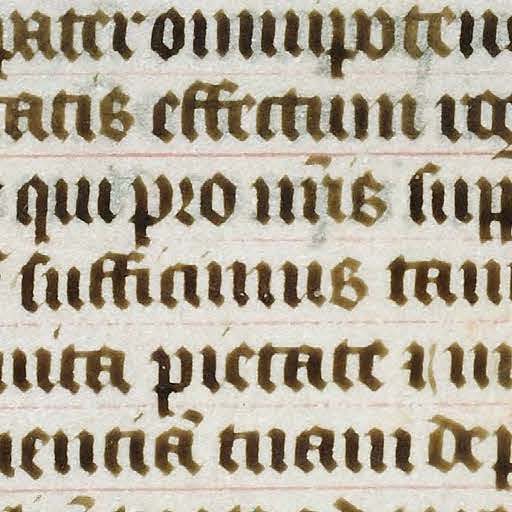 pater omnipotens
tatis effectum
qui pro nr̄is sup
sufficimus tam
nita pietate
mentiā tuam dep